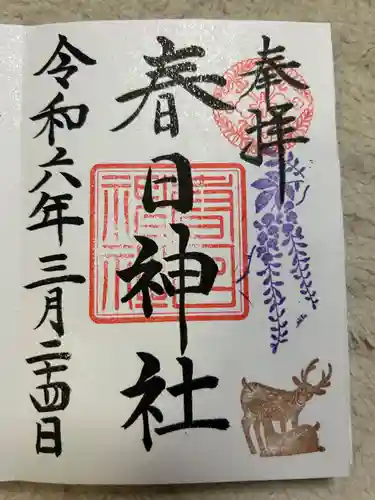 奉拝
春日神社
令和六年三月二十四日